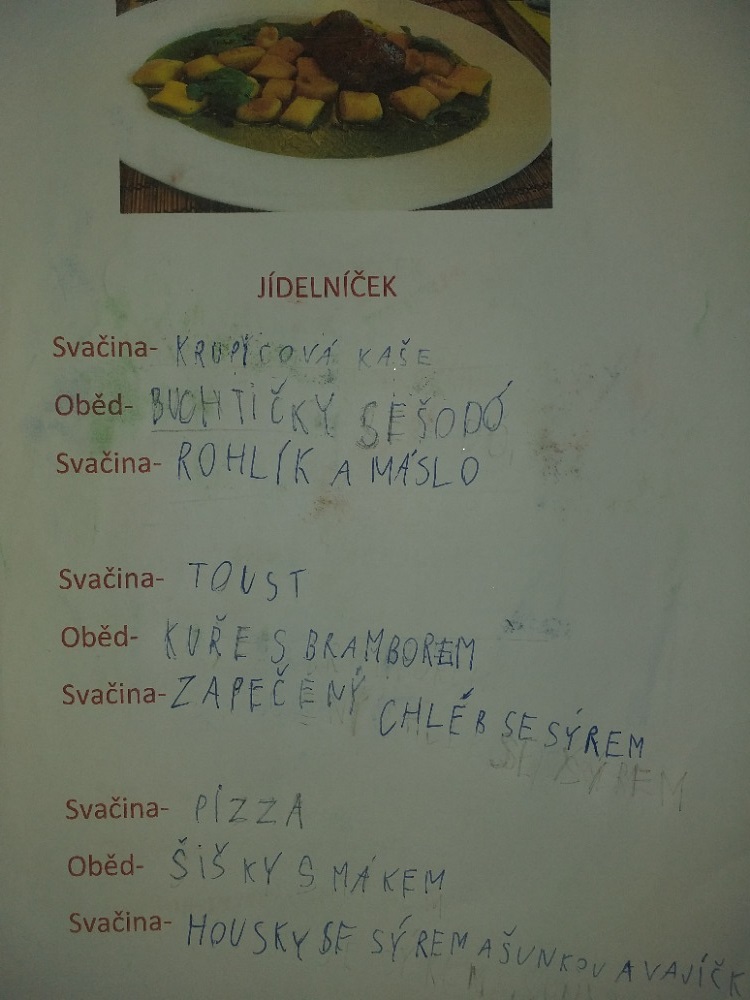 JÍDELNÍČEK
Svačina- KRUPICOVÁ KAŠE
Oběd- BUCHTIČKY SEŠODÓ
Svačina- ROHLÍK A MÁSLO
Svačina- TOUST
Oběd- KUŘE S BRAMBOREM
Svačina- ZAPEČENÝ CHLÉB SE SÝREM
Svačina- PÍZZA
Oběd- ŠIŠKY S MÁKEM
Svačina- HOUSKY SE SÝREM A ŠUNKOU A VAJÍČK